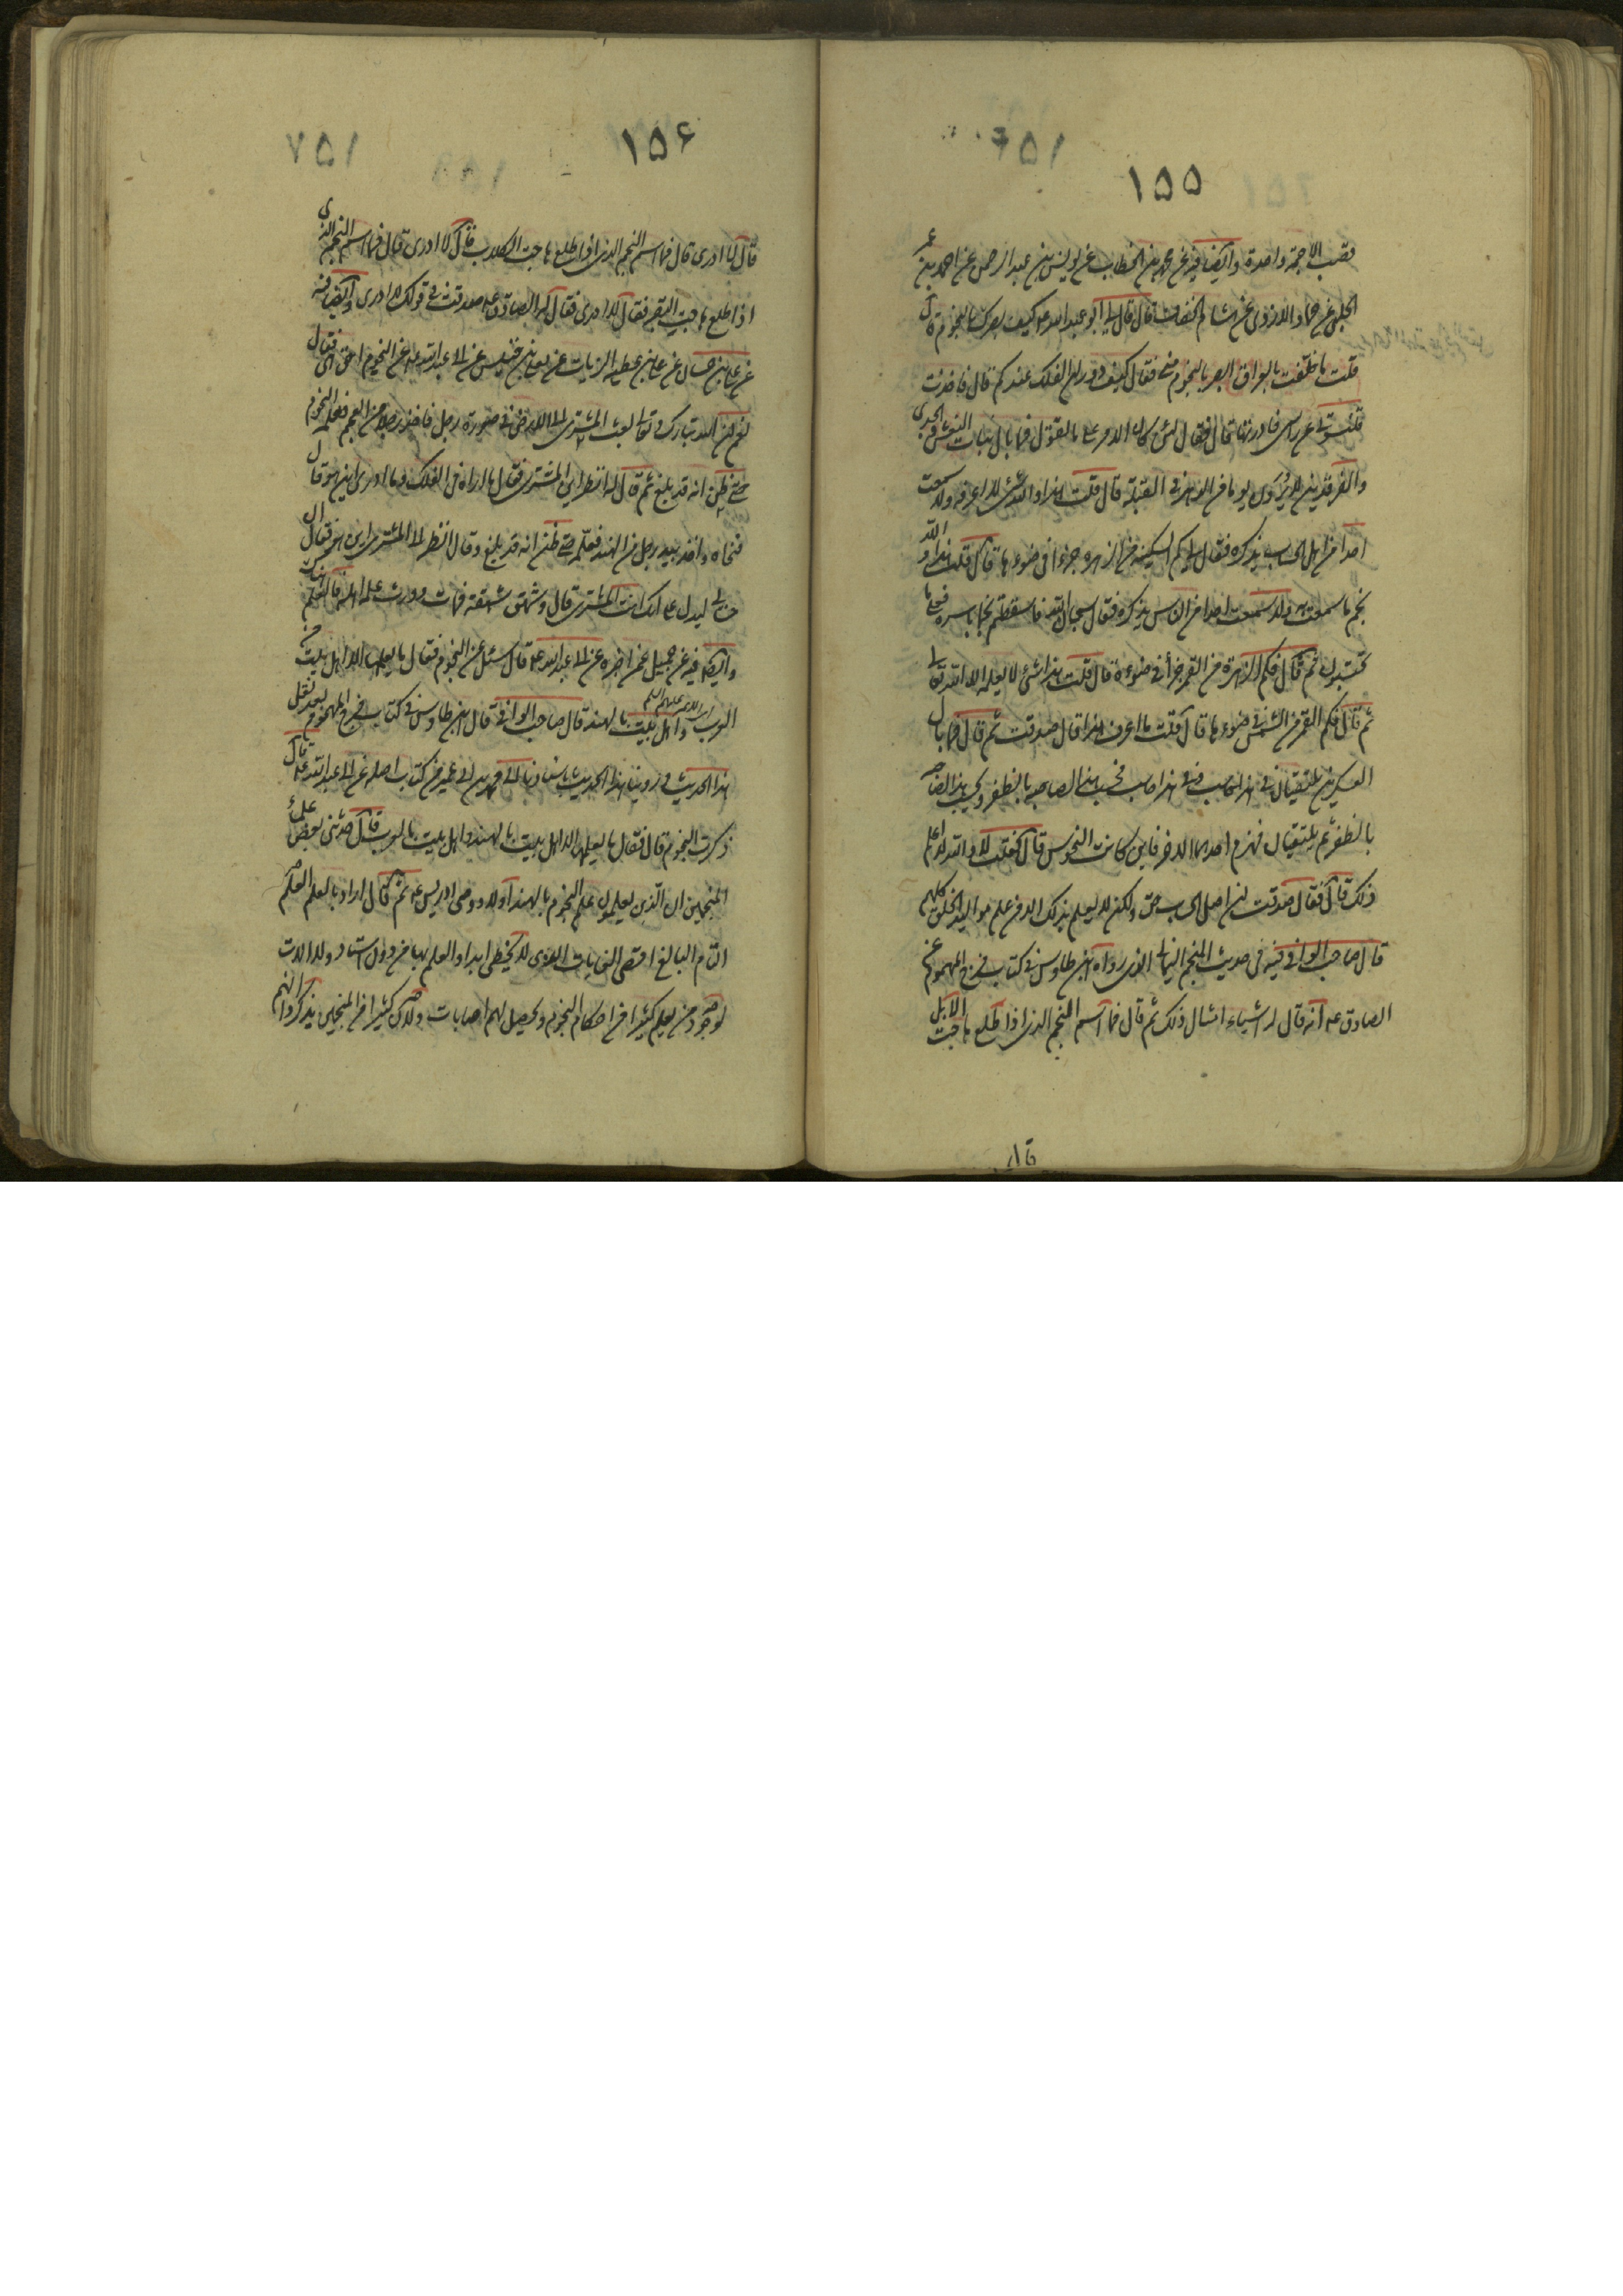 ١٥٥
قصب الاجمة واحدة وايضا فيه عن محمد بن الخطاب عن يونس بن عبد الرحمن عن احمد بن عمر
الحلبي عن حماد الازدي عن هشام الخفاف قال قال لي ابو عبد الله ع كيف بصرك بالنجوم قال
قلت ما خلفت بالعراق ابصر بالنجوم مني فقال كيف دوران الفلك عندكم قال فاخذت
قلنسوتي عن راسي فادرتها قال فقال لئن كان الامر على ما تقول فما بال بنات النعش والجدي
والفرقدين لا يرون يدورون يوما من الدهر في القبلة قال قلت هذا والله شئ لا اعرفه ولا سمعت
احدا من اهل الحساب يذكره فقال لي كم السكينة من الزهرة جزءا في ضوءها قال قلت هذا والله
نجم ما سمعت به ولا سمعت احدا من الناس يذكره فقال سبحان الله فاسقطتم نجما باسره فعلى ما
تحسبون ثم قال فكم الزهرة من القمر جزءا في ضوءه قال قلت هذا شئ لا يعلمه الا الله تعالى
ثم قال فكم القمر من الشمس في ضوءها قال قلت ما اعرف هذا قال صدقت ثم قال فما بال
العسكرين يلتقيان في هذا حاسب وفي هذا حاسب فيحسب هذا لصاحبه بالظفر ويحسب هذا لصاحبه
بالظفر ثم يلتقيان فيهزم احدهما الاخر فاين كانت النحوس قال فقلت لا والله لا اعلم
ذلك قال فقال صدقت ان اصل الحساب حق ولكن لا يعلم ذلك الا من علم مواليد الخلق كلهم
قال صاحب الوافي فيه في حديث المنجم اليماني الذي رواه ابن طاوس في كتاب فرج المهموم عن
الصادق ع انه قال له اشياء امثال ذلك ثم قال فما اسم النجم الذي اذا طلع هاجت الابل
قال
١٥٦
قال لا ادري قال فما اسم النجم الذي اذا طلع هاجت الكلاب قال لا ادري قال فما اسم النجم الذي
اذا طلع هاجت البقر فقال لا ادري فقال له الصادق ع صدقت في قولك لا ادري وايضا فيه
عن علي بن حسان عن علي بن عطية الزيات عن معلى بن خنيس عن ابي عبد الله ع عن النجوم احق هي فقال
نعم ان الله تبارك وتعالى بعث المشتري الى الارض في صورة رجل فاخذ رجلا من العجم فعلمه النجوم
حتى ظن انه قد بلغ ثم قال له انظر اين المشتري فقال ما اراه في الفلك وما ادري اين هو قال
فنحاه واخذ بيد رجل من الهند فعلمه حتى ظن انه قد بلغ وقال انظر الى المشتري اين هو فقال ان
حسابي ليدل على انك انت المشتري قال وشهق شهقة فمات وورث علمه اهله فالعلم هناك
وايضا فيه عن جميل عمن اخبره عن ابي عبد الله ع قال سئل عن النجوم فقال ما يعلمها الا اهل بيت من
العرب واهل بيت بالهند قال صاحب الوافي قال ابن طاوس في كتاب فرج المهموم بعد نقل
هذا الحديث وروينا هذا الحديث باسنادنا الى محمد بن ابي عمير من كتاب اصله عن ابي عبد الله ع قال
ذكرت النجوم قال فقال ما يعلمها الا اهل بيت بالهند واهل بيت بالعرب قال حدثني بعض علماء
المنجمين ان الذين يعلمون علم النجوم بالهند اولاد وصي ادريس ع ثم قال اراد بالعلم العلم
التام البالغ اقصى الغايات الذي لا يخطئ ابدا والعلم بها من دون استاد ولا الات
لوجود من يعلم كثيرا من احكام النجوم وتحصيل لهم اصابات ولان كثيرا من المنجمين يذكروا انهم